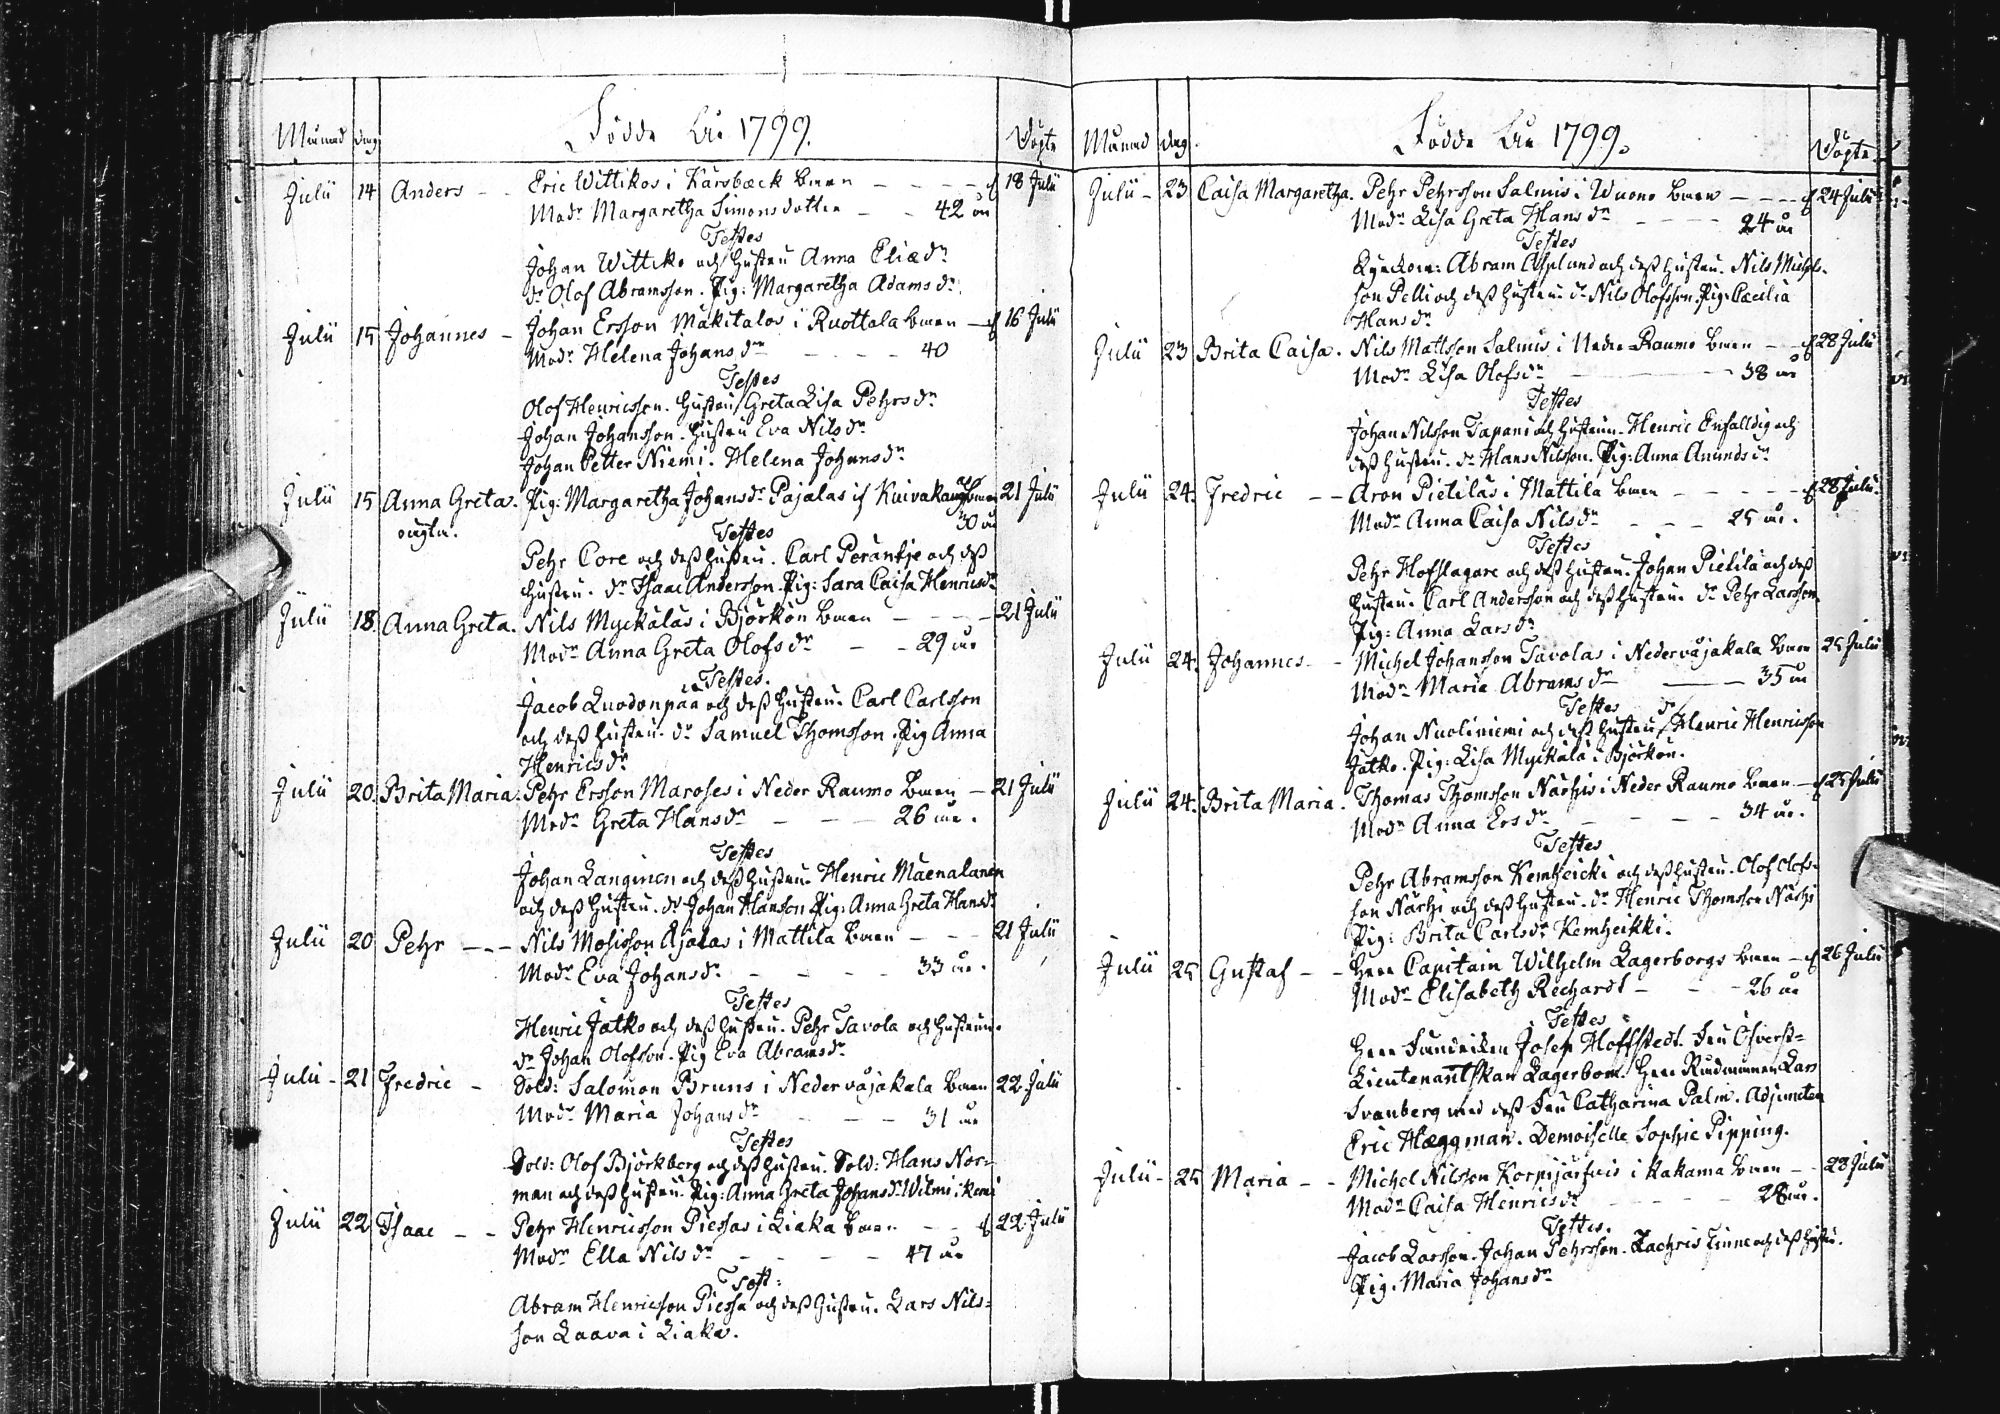 Månad dag Födde År 1799. Döpte
Julii 14 Anders - - Eric Wittikos i Karsbäck barn - - - - 18 Julii
Modr Margaretha Simonsdotter - - 42 år
Testes
Johan Wittiko och Hustru Anna Eliædr
dr Olof Abramsson. Pig: Margaretha Adamsdr.
Julii 15 Johannes - Johan Ersson Mäkitalos i Ruottala barn - 16 Julii
Modr Helena Johansdr - - - - 40
Testes
Olof Henricsson. Hustru Greta Lisa Pehrsdr
Johan Johansson. Hustru Eva Nilsdr
Johan Petter Niemi. Helena Johansdr
Julii 15 Anna Greta. Pig: Margaretha Johansdr Pajalas if Kuivakangas barn 21 Julii
oägta. 30 år
Testes
Pehr Core och dess Hustru. Carl Peräntje och dess
Hustru. dr Isaac Andersson. Pig: Sara Caisa Henricsdr
Julii 18. Anna Greta. Nils Myckäläs i Björkön barn - - - - 21 Julii
Modr Anna Greta Olofsdr - - 29 år
Testes.
Jacob Luodonpää och dess Hustru. Carl Carlsson
och dess Hustru. dr Samuel Thomsson. Pig Anna
Henricsdr
Julii 20. Brita Maria. Pehr Ersson Maroses i Neder Raumo barn - 21 Julii
Modr Greta Hansdr - - - 26 år.
Testes
Johan Langinen och dess Hustru. Henric Maenalanen
och dess Hustru. dr Johan Hansson Pig: Anna Greta Hansdr
Julii 20 Pehr - - - Nils Mosisson Äjälas i Mattila barn - - - 21 Julii
Modr Eva Johansdr - - - - 33 år.
Testes
Henric Jatko och dess Hustru. Pehr Tavola och Hustrun.
dr Johan Olofsson. Pig Eva Abramsdr
Julii - 21 Fredric - Sold: Salomon Bruns i Neder wäjakala barn 22 Julii
Modr Maria Johansdr - - - 31 år
Testes
Sold: Olof Björkberg och dess Hustru. Sold: Hans Nor-
man och dess Hustru. Pig: Anna Greta Johansdr Wilmi: Kemi
Julii 22 Isaac - - Pehr Henricsson Piessas i Liaka barn - - 22 Julii
Modr Ella Nilsdr - - - - 47 år
Test:
Abram Henricsson Piessa och dess Hustru. Lars Nils-
son Laava i Liaka.
Månad dag. Födde År 1799. Döpte
Julii - 23 Caisa Margaretha. Pehr Pehrsson Salmis i Wuono barn - - - 24 Julii
Modr Lisa Greta Hansdr - - - - 24 år
Testes
Abram Asplund och dess Hustru. Nils Michels-
son Pelli och dess Hustru. dr Nils Olofsson. Pig: Cæcilia
Hansdr
Julii 23 Brita Caisa. Nils Mattsson Salmis i Neder Raumo barn - - 28 Julii
Modr Lisa Olofsdr - - - - 38 år
Testes
Johan Nilsson Tapani och Hustrun. Henric Enfalldig och
dess Hustru. dr Hans Nilsson. Pig: Anna Anundsdr
Julii 24. Fredric - - Aron Pietiläs i Mattila barn - - - - 28 Julii.
Modr Anna Caisa Nilsdr - - - 25 år.
Testes
Pehr Hofslagare och dess Hustru. Johan Pietilä och dess
Hustru. Carl Andersson och dess Hustru. dr Pehr Larsson
Pig: Anna Larsdr
Julii 24. Johannes - - Michel Johansson Tavolas i Neder wäjakala barn 25 Julii
Modr Maria Abramsdr - - - 35 år
Testes
Johan Nuoliniemi och dess Hustru, dr Henric Henricsson
Jatko. Pig: Lisa Myckälä i Björkön.
Julii 24. Brita Maria. Thomas Thomsson Närhis i Neder Raumo barn - 25 Julii
Modr Anna Ersdr - - - - 34 år.
Testes
Pehr Abramsson Kemheicki och dess Hustru. Olof Olofs-
son Närhi och dess Hustru. dr Henric Thomsson Närhi
Pig: Brita Carlsdr Kemheikki.
Julii 25 Gustaf - - Herr Capitain Wilhelm Lagerborgs barn - 26 Julii
Modr Elisabeth Rechardt - - - 26 år
Testes
Herr Josep Hoffstedt. Fru Öfverst-
Lieutenantskan Lagerbom. Herr Lars
Svanberg med dess Fru Catharina Palm. Adjuncten
Eric Hæggman. Demoiselle Sophie Pipping.
Julii - 25 Maria - - Michel Nilsson Korpijärfvis i Kakama barn - - 28 Julii
Modr Caisa Henricsdr - - - - 28 år.
Testes.
Jacob Larsson. Johan Pehrsson. Zachris Linne och dess Hustru.
Pig. Maria Johansdr